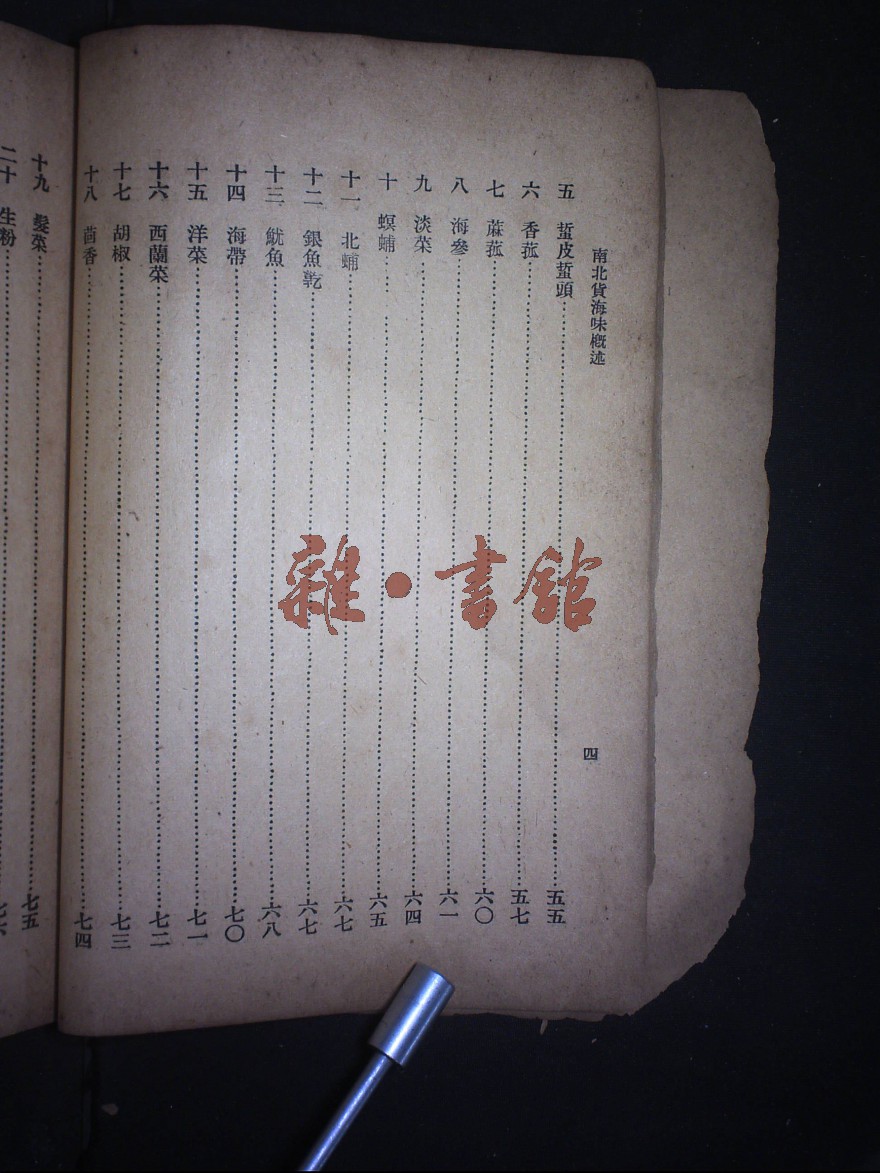 南北貨海味概述
四
五 蜇皮蜇頭 五五
六 香菰 五七
七 蔴菰 六〇
八 海參 六一
九 淡菜 六四
十 螟蜅 六五
十一 北蜅 六七
十二 銀魚乾 六七
十三 魷魚 六八
十四 海帶 七〇
十五 洋菜 七一
十六 西蘭菜 七二
十七 胡椒 七三
十八 茴香 七四
十九 髮菜 七五
二十 生粉 七六
雜·書館